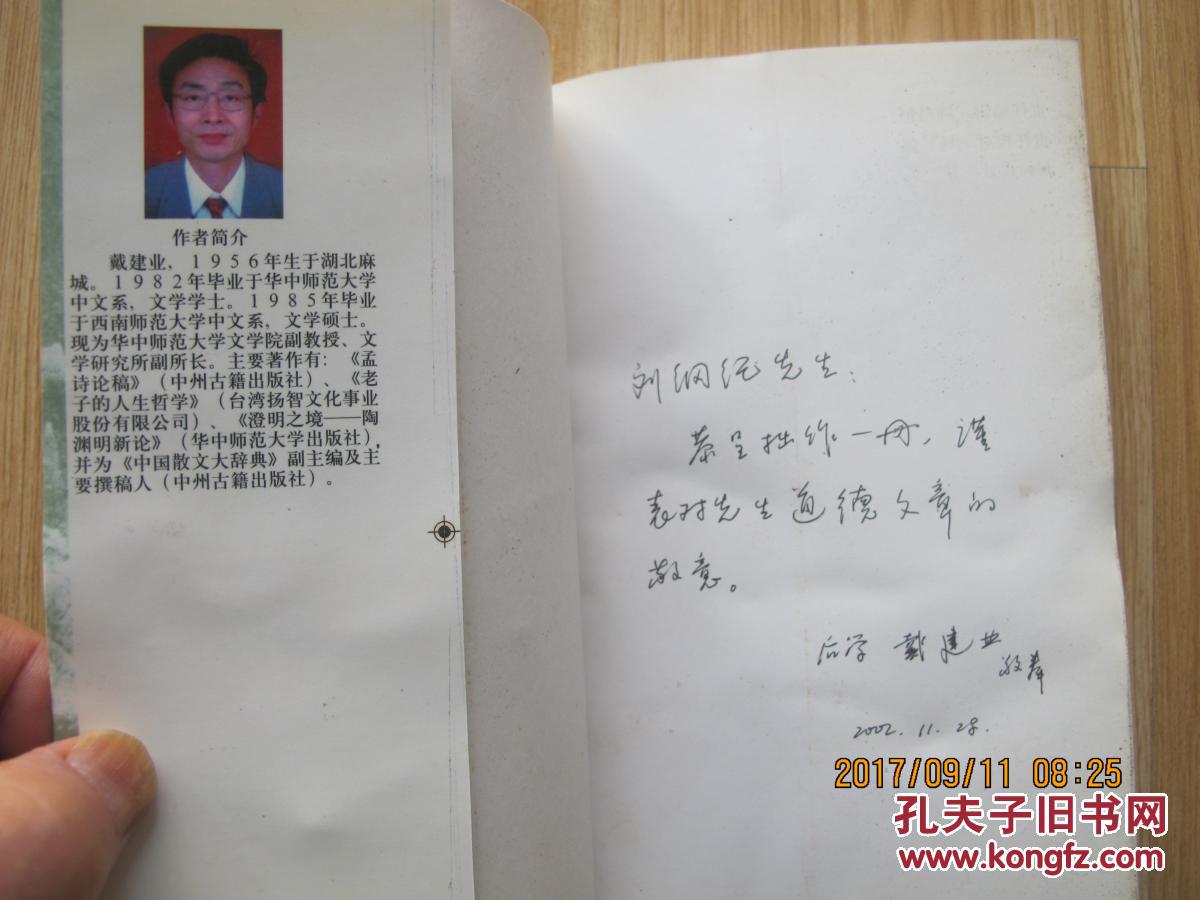 作者简介
戴建业，１９５６年生于湖北麻
城。１９８２年毕业于华中师范大学
中文系，文学学士。１９８５年毕业
于西南师范大学中文系，文学硕士。
现为华中师范大学文学院副教授、文
学研究所副所长。主要著作有：《孟
诗论稿》（中州古籍出版社）、《老
子的人生哲学》（台湾扬智文化事业
股份有限公司）、《澄明之境——陶
渊明新论》（华中师范大学出版社），
并为《中国散文大辞典》副主编及主
要撰稿人（中州古籍出版社）。
刘纲纪先生：
恭呈拙作一册，谨
表对先生道德文章的
敬意。
后学 戴建业
敬奉
2002.11.28.
2017/09/11 08:25
孔夫子旧书网
www.kongfz.com